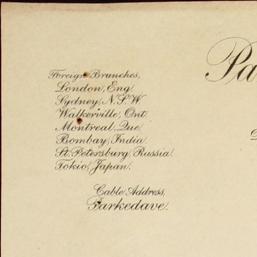 Foreign Branches,
London, Eng.
Sydney, N.S.W.
Walkerville, Ont.
Montreal, Que.
Bombay, India.
St. Petersburg, Russia.
Tokio, Japan.
Pa
Cable Address,
Parkedave.